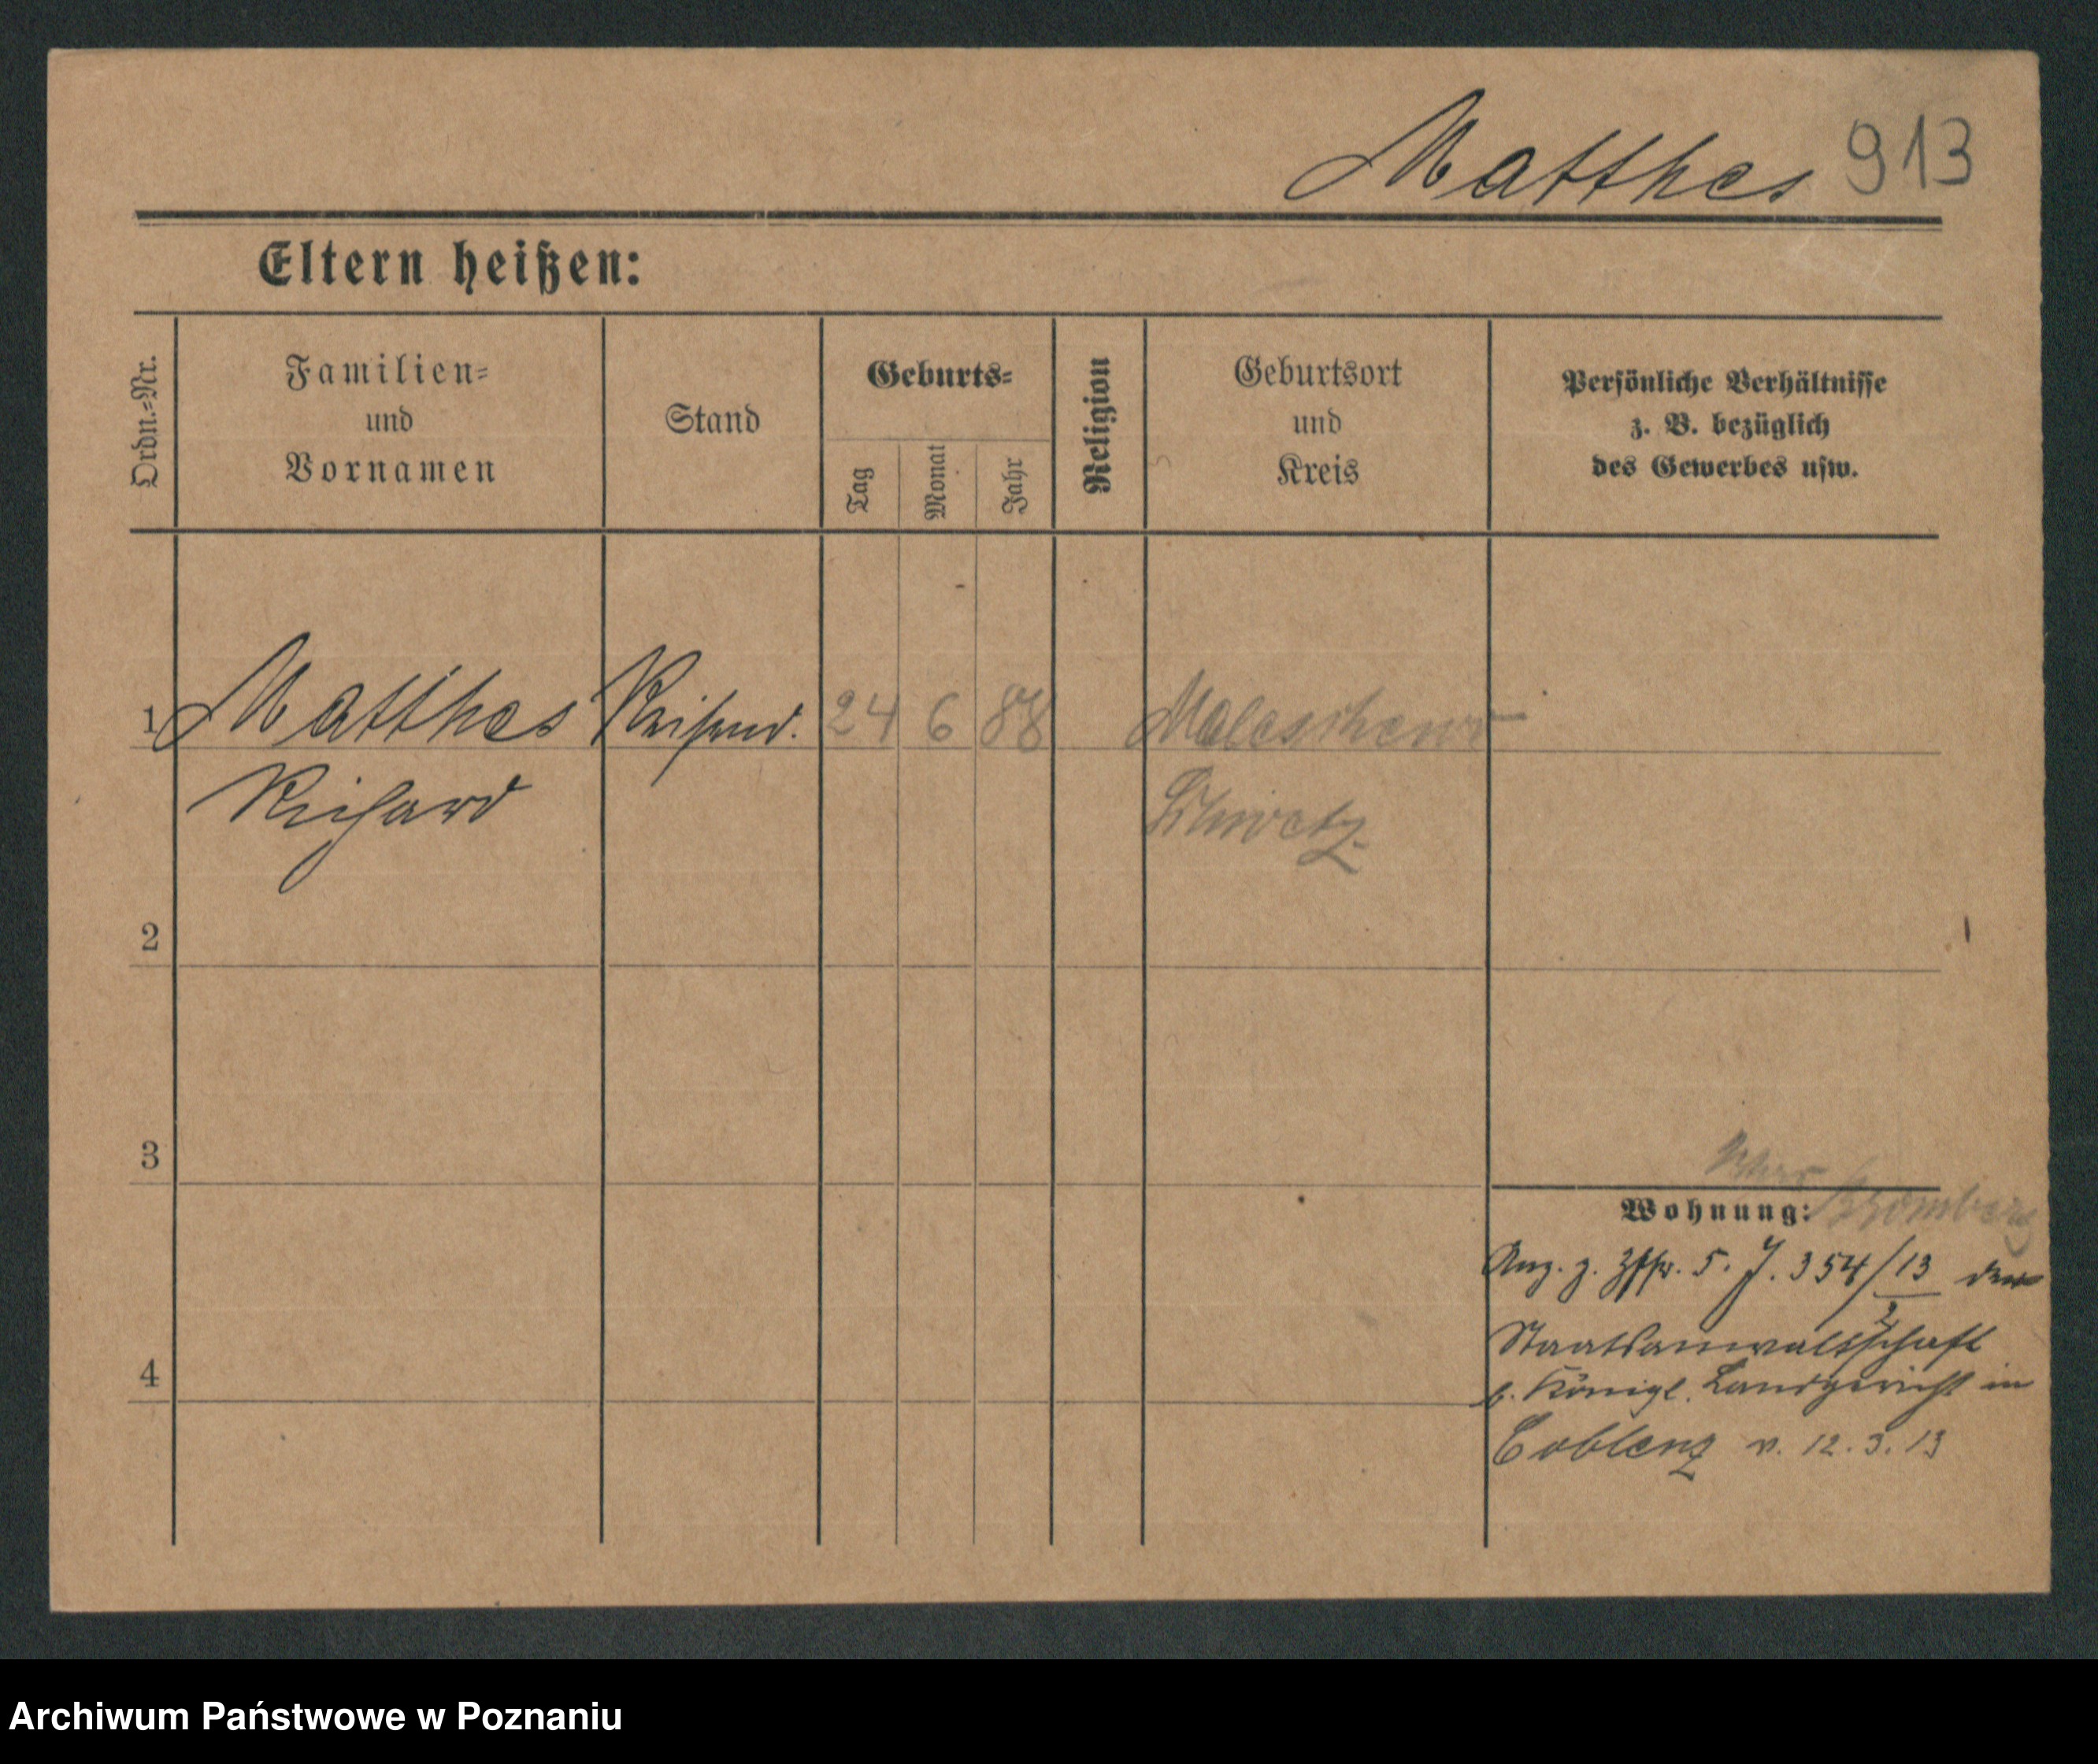 Matthes 913
Eltern heißen:
Ordn.=Nr.
Familien=
und
Vornamen
Stand
Geburts=
Tag
Monat
Jahr
Religion
Geburtsort
und
Kreis
Persönliche Verhältnisse
z. B. bezüglich
des Gewerbes usw.
1 Matthes Reisend. 24 6 88
Richard Schwetz
2
3
Wohnung: Bromberg
4
Anz. z. 5. J. 354/13 der
Staatsanwaltschaft
b. Königl. Landgericht in
Coblenz v. 12. 3. 13
Archiwum Państwowe w Poznaniu